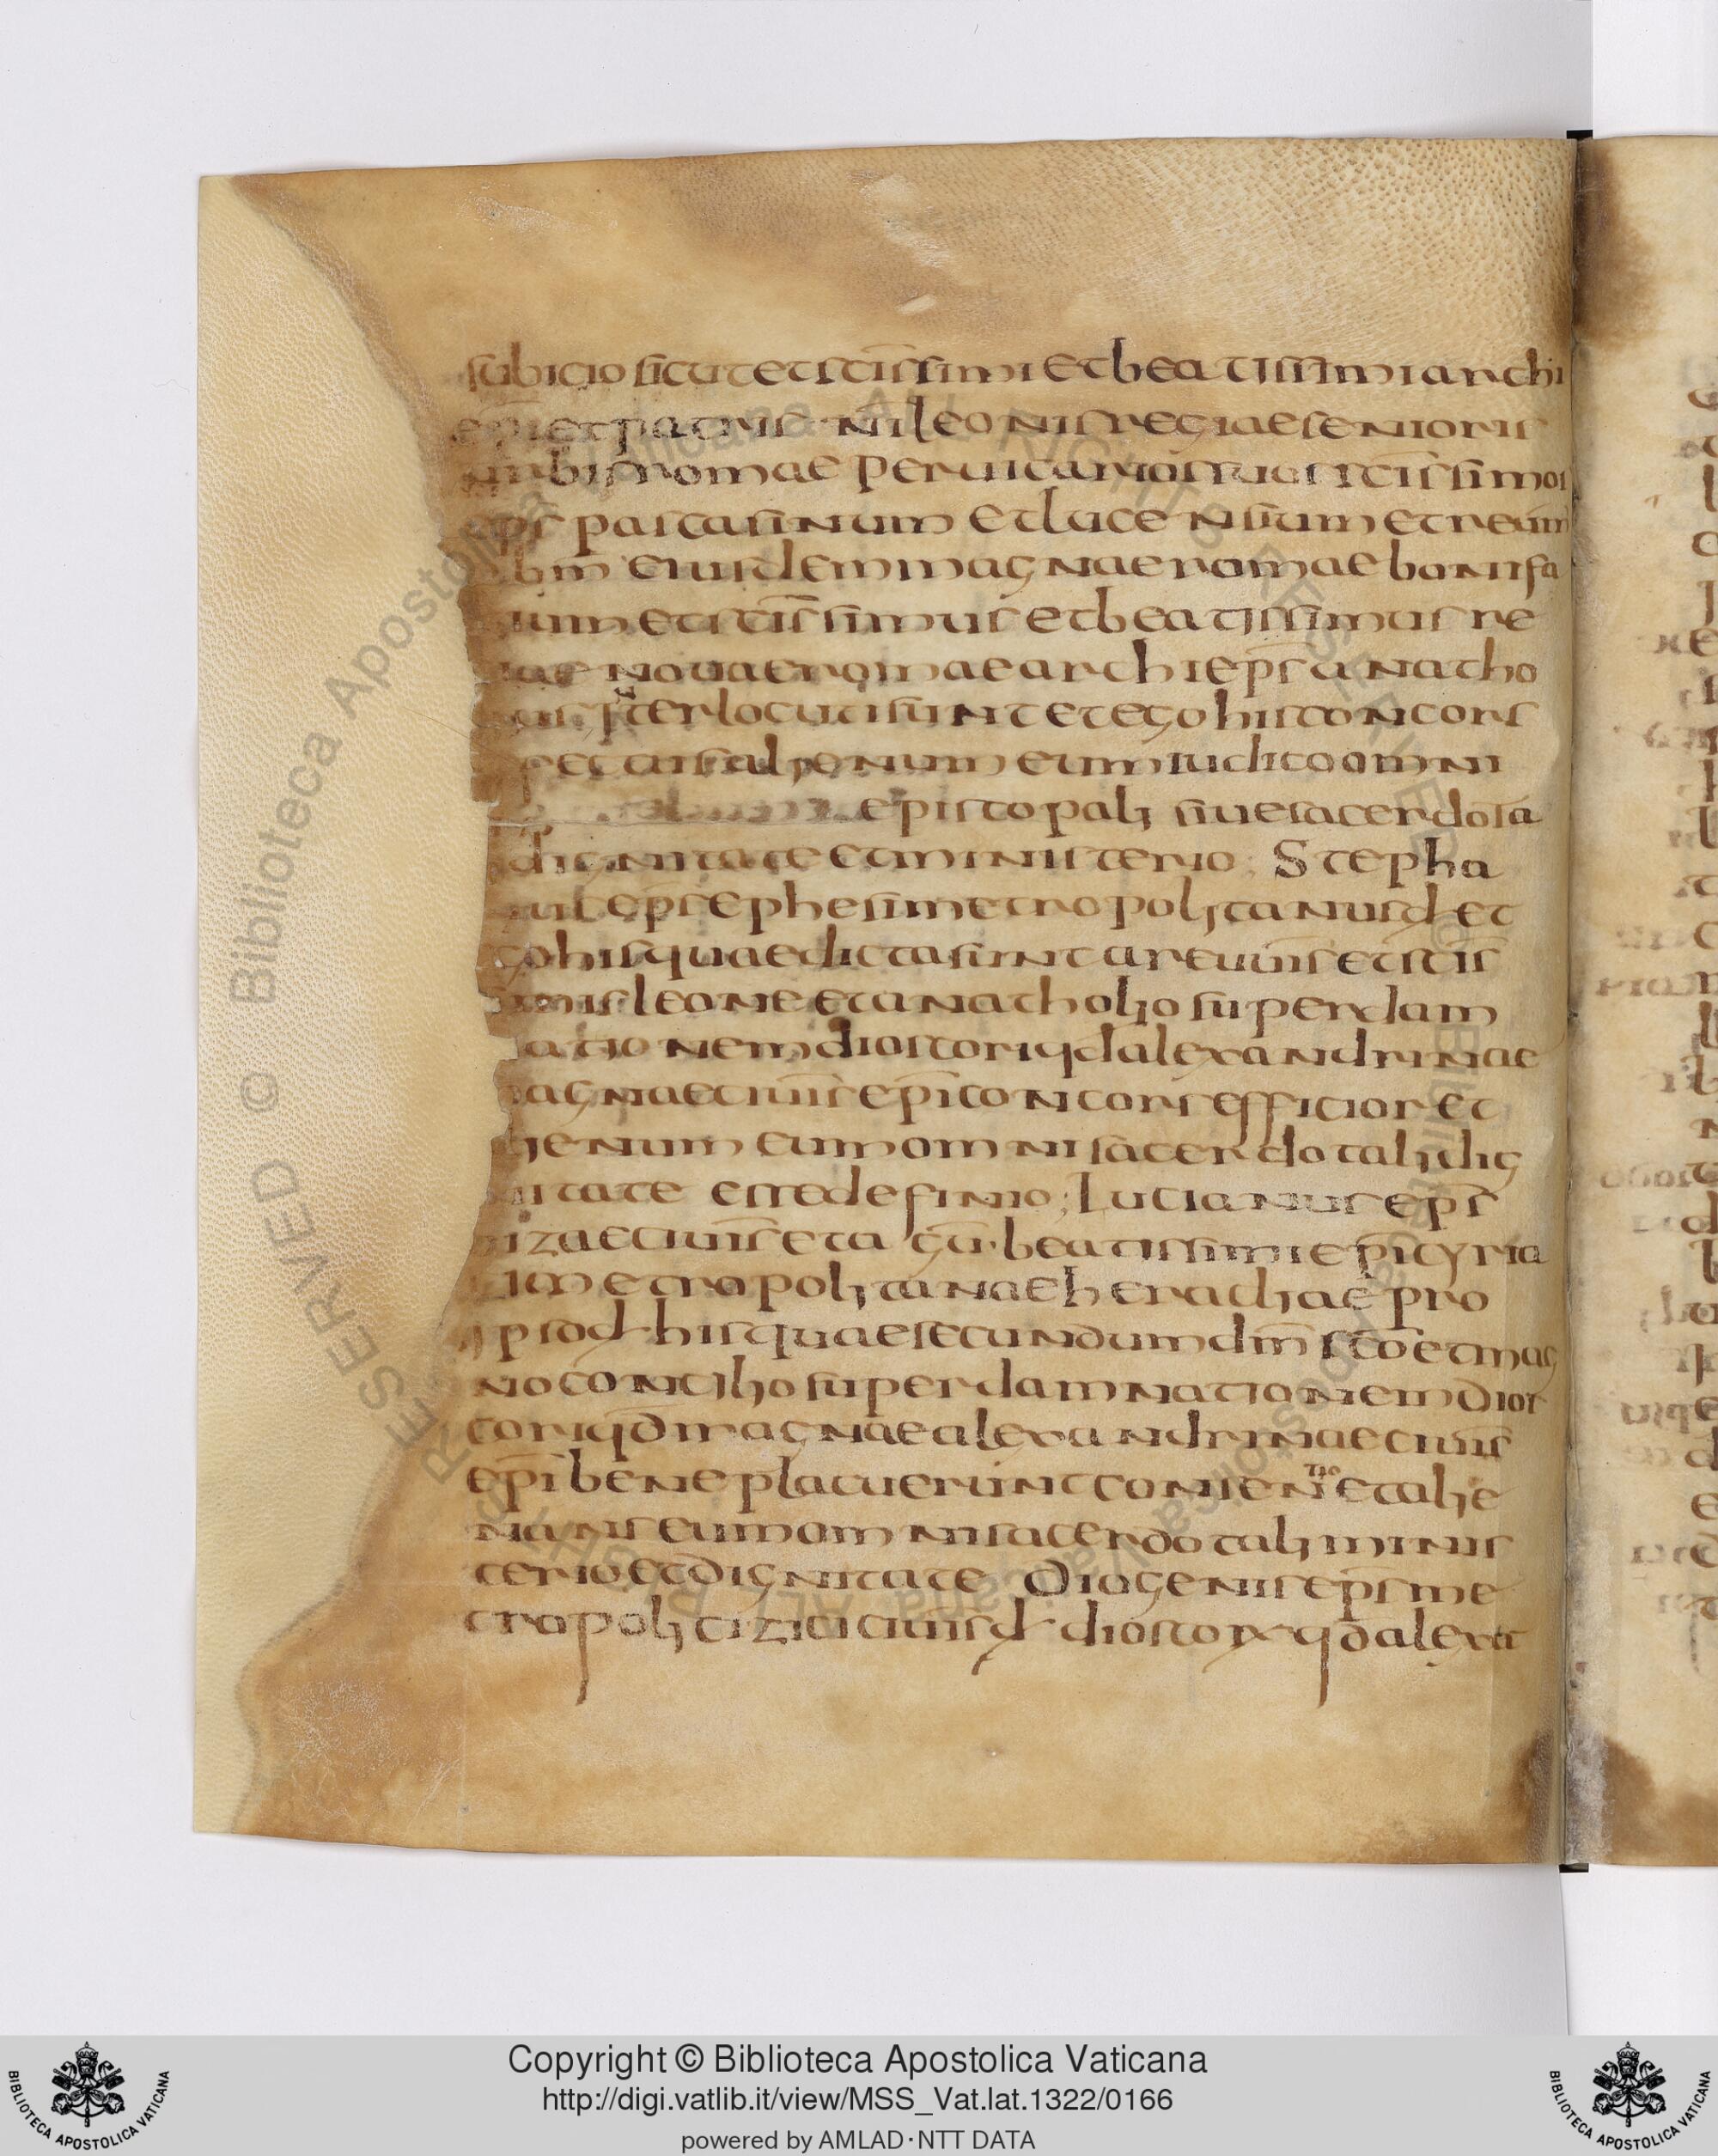 subicio sicut et sc̄issimi et beatissimi archi
ep̄i et patris n̄i leonis regiae senioris
urbis romae per uicarios suos sc̄issimos
ep̄s pascasinum et lucensium et reum
bm̄ eiusdem magnae romae bonifa
ium et sc̄issimus et beatissimus re
iae nouae romae archiep̄s anatho
ius īterlocuti sunt et ego his concors
alienum eum iudico omni
episcopali siue sacerdota
dignitate et ministerio; Stepha
nus ep̄s ephesi metropolitanus đ et
go his quae dicta sunt a reuūis et sc̄is
simis leone et anatholio super dam
natione m dioscori qd alexandrinae
magnae ciuīs ep̄i concors efficior et
lienum eum omni sacerdotali dig
nitate esse definio; Lucianus ep̄s
bizae ciuīs et a gū· beatissimi ep̄i cyria
ci metropolitanae heracliae pro
ipso đ his quae secundum dm̄ sc̄o et mag
no concilio super damnationem dios
cori qd magnae alexandrinae ciuīs
ep̄i bene placuerunt consentio et alie
nans eum omni sacerdotali minis
terio et dignitate Diogenis ep̄s me
tropoli cizici ciuīs đ dioscorū qd alexa
Copyright © Biblioteca Apostolica Vaticana
http://digi.vatlib.it/view/MSS_Vat.lat.1322/0166
powered by AMLAD·NTT DATA
BIBLIOTECA APOSTOLICA VATICANA
BIBLIOTECA APOSTOLICA VATICANA